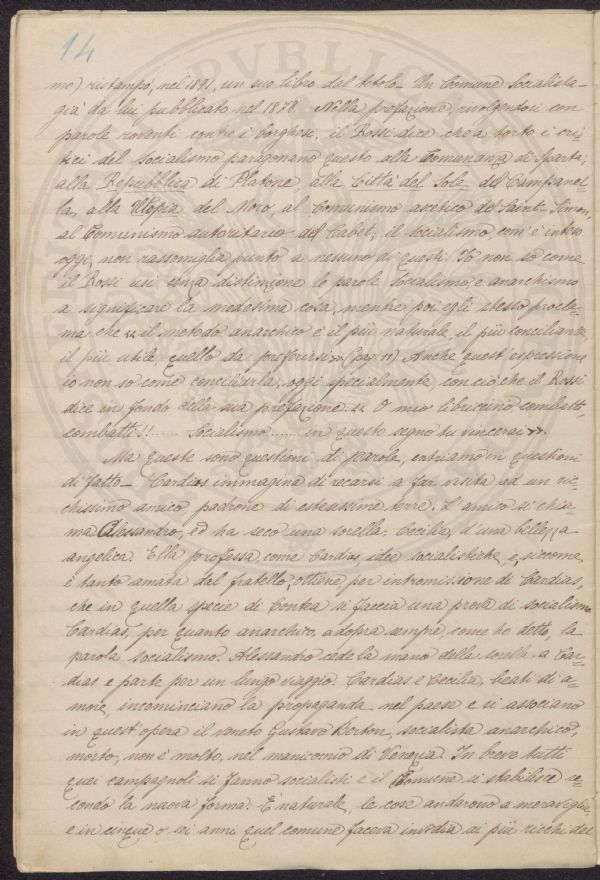 14
mo) ristampò, nel 1891, un suo libro dal titolo - Un Comune Socialista -
già da lui pubblicato nel 1878. Nella prefazione, rivolgendosi con
parole roventi contro i borghesi, il Rossi dice che a torto i cri
tici del Socialismo paragonano questo alla Comunanza di Sparta,
alla Repubblica di Platone, alla Città del Sole del Campanel-
la, alla Utopia del Moro, al Comunismo ascetico del Saint-Simon,
al Comunismo autoritario del Cabet; il socialismo, com'è inteso
oggi, non rassomiglia punto a nessuno di questi. Io non so come
il Rossi usi senza distinzione le parole Socialismo e anarchismo
a significare la medesima cosa, mentre poi egli stesso procla-
ma che « il metodo anarchico è il più naturale, il più conciliante,
il più utile, quello da preferirsi » (pag. 11) Anche quest'espressione
io non so come conciliarla, oggi specialmente, con ciò che il Rossi
dice in fondo della sua prefazione: « O mio libriccino, combatti,
combatti!! ...... Socialismo ...... in questo segno tu vincerai ».
Ma queste sono questioni di parola, entriamo in questioni
di fatto - Cardias immagina di recarsi a far visita ad un ric-
chissimo amico, padrone di estesissime terre. L'amico si chia-
ma Alessandro, ed ha seco una sorella, Cecilia, d'una bellezza
angelica. Ella professa, come Cardias, idee socialistiche, e, siccome
è tanto amata dal fratello, ottiene per intromissione di Cardias,
che in quella specie di Contea si faccia una prova di socialismo.
Cardias, per quanto anarchico, adopra sempre, come ho detto, la
parola socialismo. Alessandro cede la mano della sorella a Car-
dias e parte per un lungo viaggio. Cardias e Cecilia, beati di a-
more, incominciano la propaganda nel paese e si associano
in quest'opera il veneto Gustavo Berton, socialista anarchico,
morto, non è molto, nel manicomio di Venezia. In breve tutti
quei campagnoli si fanno socialisti e il Comune si stabilisce se-
condo la nuova forma. È naturale, le cose andarono a meraviglia
e in cinque o sei anni quel comune faceva invidia ai più ricchi del